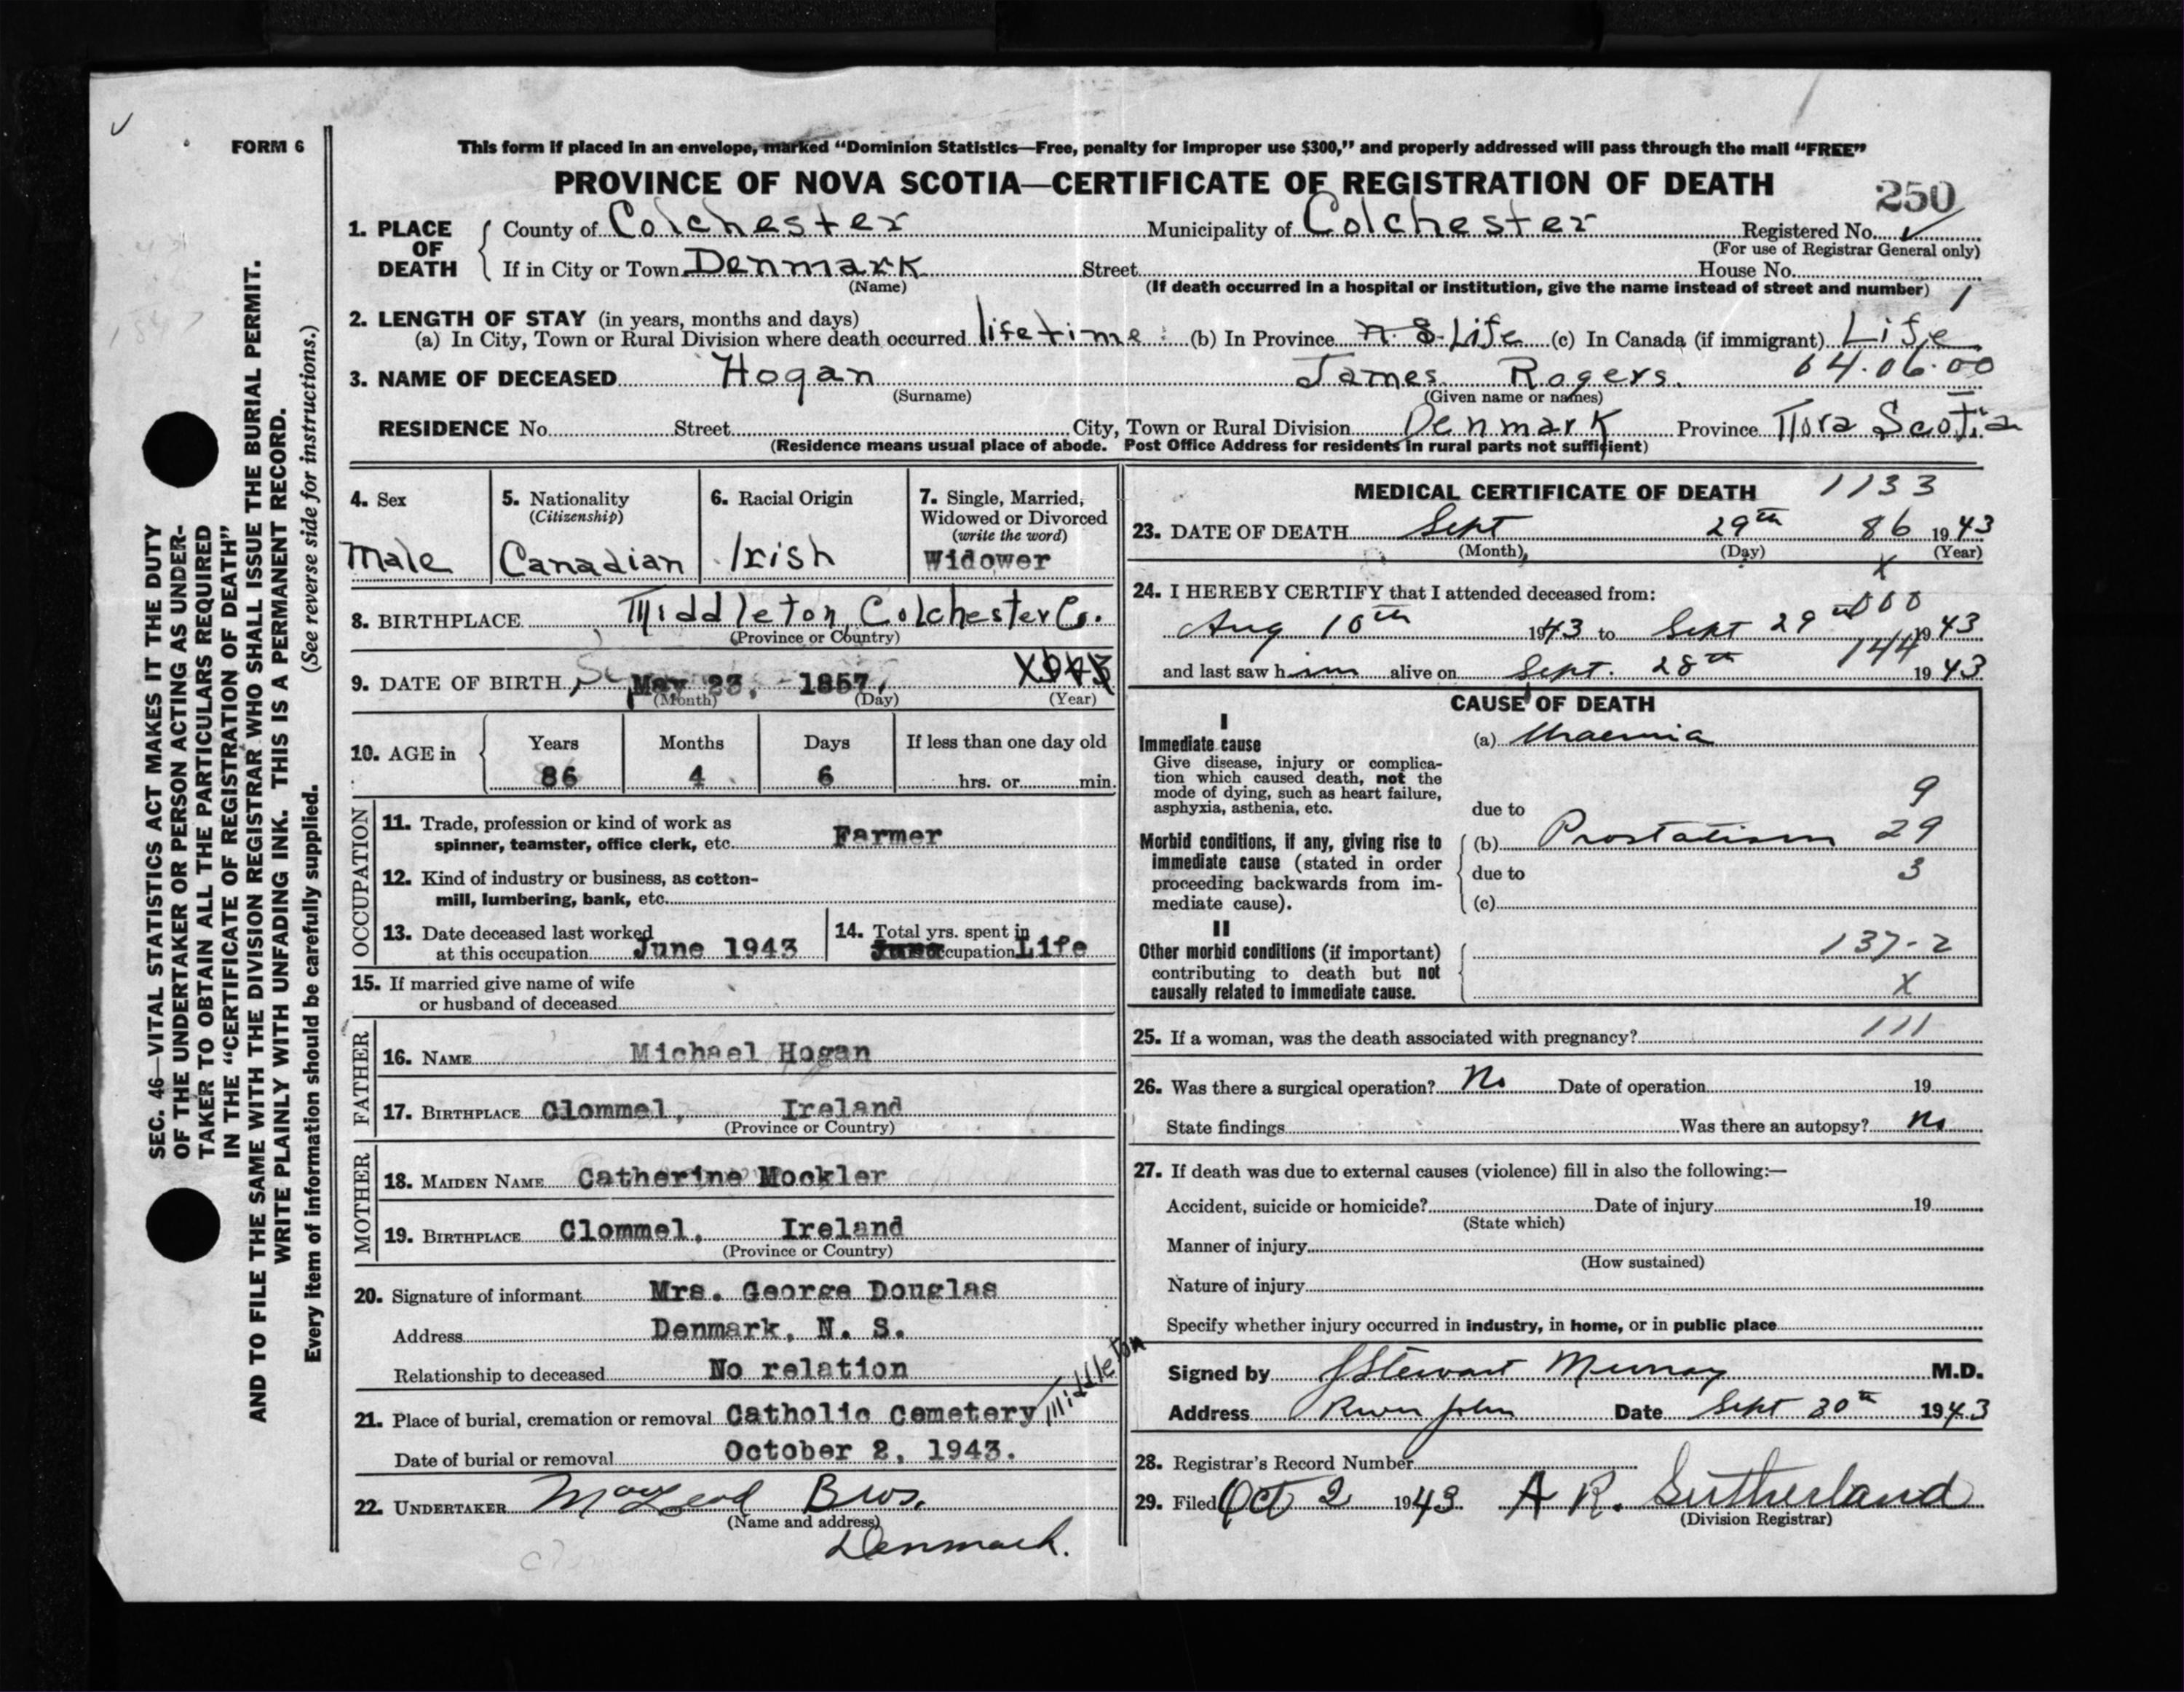 FORM 6
This form if placed in an envelope, marked “Dominion Statistics—Free, penalty for improper use $300,” and properly addressed will pass through the mail “FREE”
PROVINCE OF NOVA SCOTIA—CERTIFICATE OF REGISTRATION OF DEATH
250
1. PLACE OF DEATH
County of Colchester Municipality of Colchester Registered No.
(For use of Registrar General only)
If in City or Town Denmark Street House No.
(Name) (If death occurred in a hospital or institution, give the name instead of street and number) 1
2. LENGTH OF STAY (in years, months and days)
(a) In City, Town or Rural Division where death occurred lifetime (b) In Province N. S. Life (c) In Canada (if immigrant) Life
64.06.00
3. NAME OF DECEASED Hogan James Rogers.
(Surname) (Given name or names)
RESIDENCE No. Street City, Town or Rural Division Denmark Province Nova Scotia
(Residence means usual place of abode. Post Office Address for residents in rural parts not sufficient)
4. Sex Male
5. Nationality (Citizenship) Canadian
6. Racial Origin Irish
7. Single, Married, Widowed or Divorced (write the word) Widower
8. BIRTHPLACE Middleton, Colchester Co.
(Province or Country)
9. DATE OF BIRTH May 23, 1857,
(Month) (Day) (Year)
10. AGE in Years Months Days If less than one day old
86 4 6 hrs. or min.
OCCUPATION
11. Trade, profession or kind of work as
spinner, teamster, office clerk, etc. Farmer
12. Kind of industry or business, as cotton-
mill, lumbering, bank, etc.
13. Date deceased last worked
at this occupation June 1943
14. Total yrs. spent in
occupation Life
15. If married give name of wife
or husband of deceased
FATHER
16. NAME Michael Hogan
17. BIRTHPLACE Clommel, Ireland
(Province or Country)
MOTHER
18. MAIDEN NAME Catherine Mockler
19. BIRTHPLACE Clommel, Ireland
(Province or Country)
20. Signature of informant Mrs. George Douglas
Address Denmark, N. S.
Relationship to deceased No relation
21. Place of burial, cremation or removal Catholic Cemetery Middleton
Date of burial or removal October 2, 1943.
22. UNDERTAKER MacLeod Bros.
(Name and address)
Denmark.
MEDICAL CERTIFICATE OF DEATH 1133
23. DATE OF DEATH Sept 29th 86 1943
(Month) (Day) (Year)
x
24. I HEREBY CERTIFY that I attended deceased from:
000
Aug 10th 1943 to Sept 29th 1943
144
and last saw him alive on Sept. 28th 1943
CAUSE OF DEATH
I
Immediate cause
Give disease, injury or complica-
tion which caused death, not the
mode of dying, such as heart failure,
asphyxia, asthenia, etc.
(a) Uraemia
9
due to
Morbid conditions, if any, giving rise to
immediate cause (stated in order
proceeding backwards from im-
mediate cause).
(b) Prostatism 29
due to 3
(c)
II
Other morbid conditions (if important)
contributing to death but not
causally related to immediate cause.
137-2
x
25. If a woman, was the death associated with pregnancy? 111
26. Was there a surgical operation? No Date of operation 19
State findings Was there an autopsy? No
27. If death was due to external causes (violence) fill in also the following:—
Accident, suicide or homicide? Date of injury 19
(State which)
Manner of injury
(How sustained)
Nature of injury
Specify whether injury occurred in industry, in home, or in public place
Signed by J Stewart Murray M.D.
Address River John Date Sept 30th 1943
28. Registrar's Record Number
29. Filed Oct 2 1943 A R. Sutherland
(Division Registrar)
SEC. 46—VITAL STATISTICS ACT MAKES IT THE DUTY
OF THE UNDERTAKER OR PERSON ACTING AS UNDER-
TAKER TO OBTAIN ALL THE PARTICULARS REQUIRED
IN THE “CERTIFICATE OF REGISTRATION OF DEATH”
AND TO FILE THE SAME WITH THE DIVISION REGISTRAR WHO SHALL ISSUE THE BURIAL PERMIT.
WRITE PLAINLY WITH UNFADING INK. THIS IS A PERMANENT RECORD.
Every item of information should be carefully supplied. (See reverse side for instructions.)